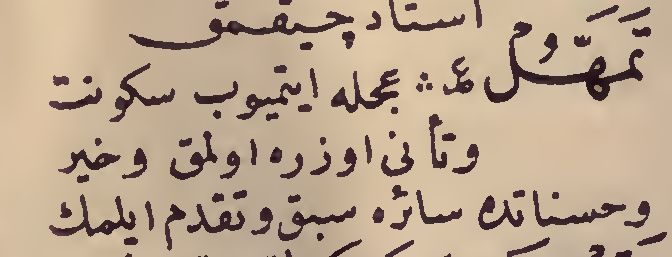 استاد چیقمق
تَمَهُّل ع ؞ عجله ایتمیوب سکونت
و تأنی اوزره اولمق و خیر
و حسناتده سائره سبق و تقدم ایلمك